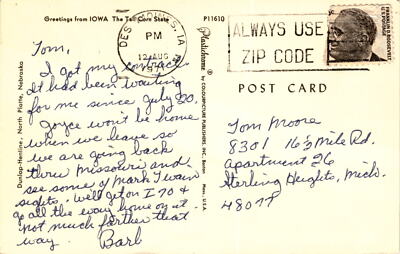 Greetings from IOWA The Tall Corn State
P11610
DES MOINES, IA
PM
12 AUG
ALWAYS USE
ZIP CODE
FRANKLIN D. ROOSEVELT
Tom,
I got my contract.
It had been waiting
for me since July 20.
Joyce won't be home
when we leave so
we are going back
thru Missouri and
see some of Mark Twain
sights. We'll get on I 70 &
go all the way home on it.
not much farther that
way. Barb
Dunlap-Henline, North Platte, Nebraska
Plastichrome
by COLOURPICTURE PUBLISHERS, INC., Boston
Mass., U.S.A.
POST CARD
Tom Moore
8301 16½ Mile Rd.
apartment 26
Sterling Heights, Mich.
48077